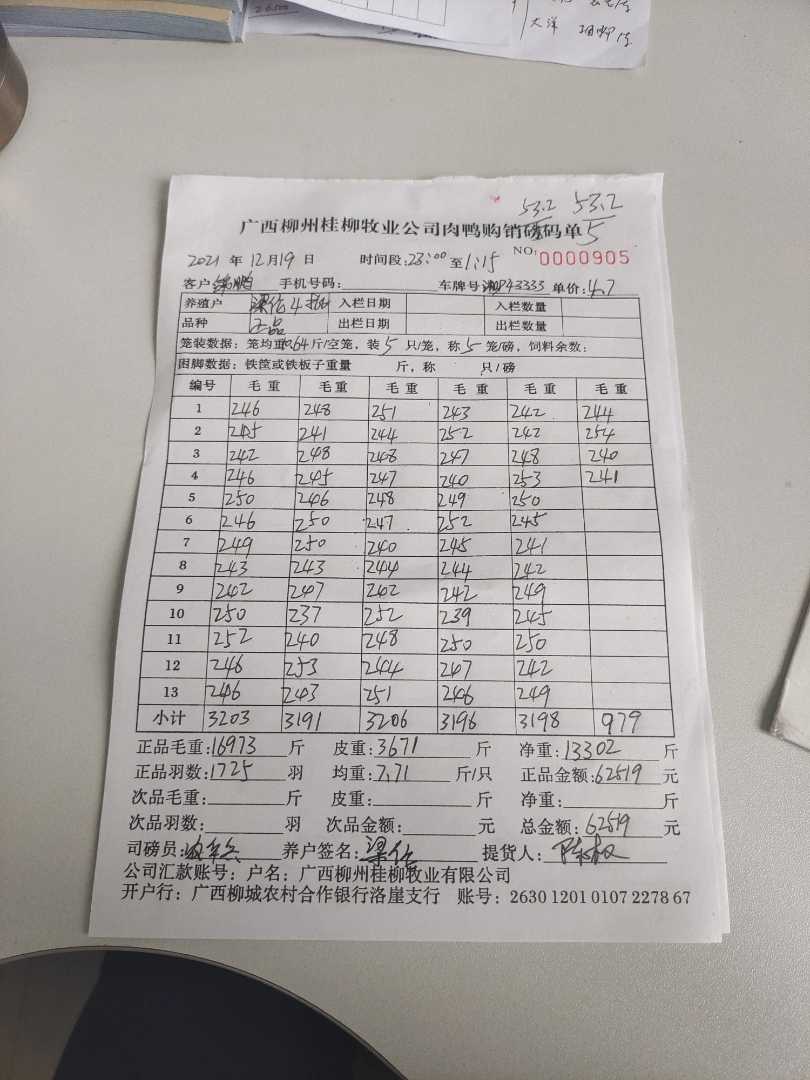 大洋
53.2 53.2
5
广西柳州桂柳牧业公司肉鸭购销磅码单
2021 年 12 月 19 日 时间段: 23:00 至 1:15 NO: 0000905
客户 鹏 手机号码: 车牌号 湘P43333 单价: 4.7
养殖户 梁佑4批 入栏日期 入栏数量
品种 正品 出栏日期 出栏数量
笼装数据: 笼均重 10.64 斤/空笼, 装 5 只/笼, 称 5 笼/磅, 饲料余数:
困脚数据: 铁筐或铁板子重量 斤, 称 只/磅
编号 毛重 毛重 毛重 毛重 毛重 毛重
1 246 248 251 243 242 244
2 245 241 244 252 242 254
3 242 248 248 247 248 240
4 246 245 247 240 253 241
5 250 246 248 249 250
6 246 250 247 252 245
7 249 250 240 245 241
8 243 243 244 244 242
9 242 247 242 242 249
10 250 237 252 239 245
11 252 240 248 250 250
12 246 253 244 247 242
13 246 243 251 246 249
小计 3203 3191 3206 3196 3198 979
正品毛重: 16973 斤 皮重: 3671 斤 净重: 13302 斤
正品羽数: 1725 羽 均重: 7.71 斤/只 正品金额: 62519 元
次品毛重: 斤 皮重: 斤 净重: 斤
次品羽数: 羽 次品金额: 元 总金额: 62519 元
司磅员: 养户签名: 梁佑 提货人:
公司汇款账号: 户名: 广西柳州桂柳牧业有限公司
开户行: 广西柳城农村合作银行洛崖支行 账号: 2630 1201 0107 2278 67